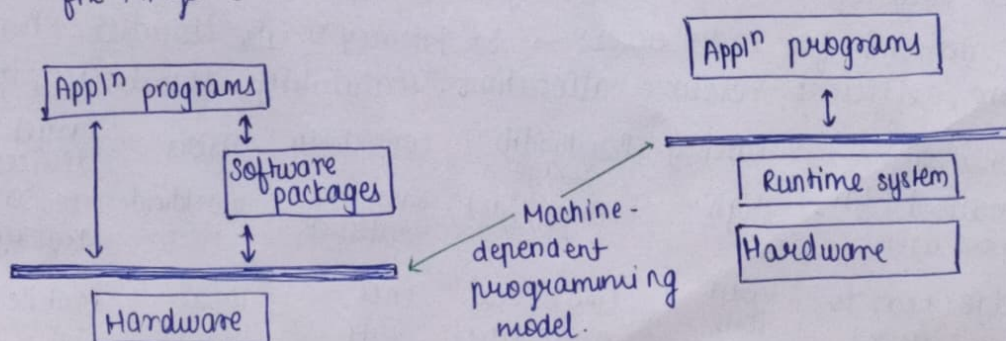 Applⁿ programs
Software
packages
Hardware
Machine-
dependent
programming
model.
Applⁿ programs
Runtime system
Hardware